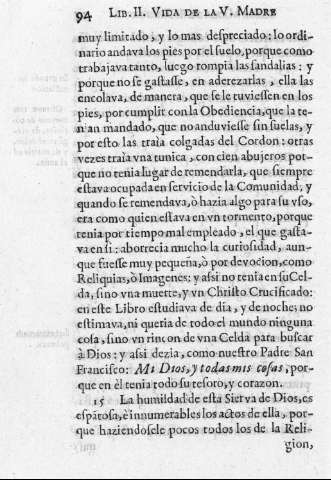 94 LIB. II. VIDA DE LA V. MADRE
muy limitado, y lo mas despreciado: lo ordi-
nario andava los pies por el suelo, porque como
trabajava tanto, luego rompia las sandalias: y
porque no se gastasse, en aderezarlas, ella las
encolava, de manera, que se le tuviessen en los
pies, por cumplir con la Obediencia, que la te-
nian mandado, que no anduviesse sin suelas, y
por esto las traìa colgadas del Cordon: otras
vezes traìa vna tunica, con cien abujeros por-
que no tenia lugar de remendarla, que siempre
estava ocupada en servicio de la Comunidad, y
quando se remendava, ò hazia algo para su vso,
era como quien estava en vn tormento, porque
tenia por tiempo mal empleado, el que gasta-
va en sì: aborrecia mucho la curiosidad, aun-
que fuesse muy pequeña, ò por devocion, como
Reliquias, ò Imagenes; y assi no tenia en su Cel-
da, sino vna muerte, y vn Christo Crucificado:
en este Libro estudiava de dia, y de noche; no
estimava, ni queria de todo el mundo ninguna
cosa, sino vn rincon de vna Celda para buscar
à Dios: y assi dezia, como nuestro Padre San
Francisco: Mi Dios, y todas mis cosas, por-
que en èl tenia todo su tesoro, y corazon.
15 La humildad de esta Sierva de Dios, es
espãtosa, è innumerables los actos de ella, por-
que haziendosele pocos todos los de la Reli-
gion,